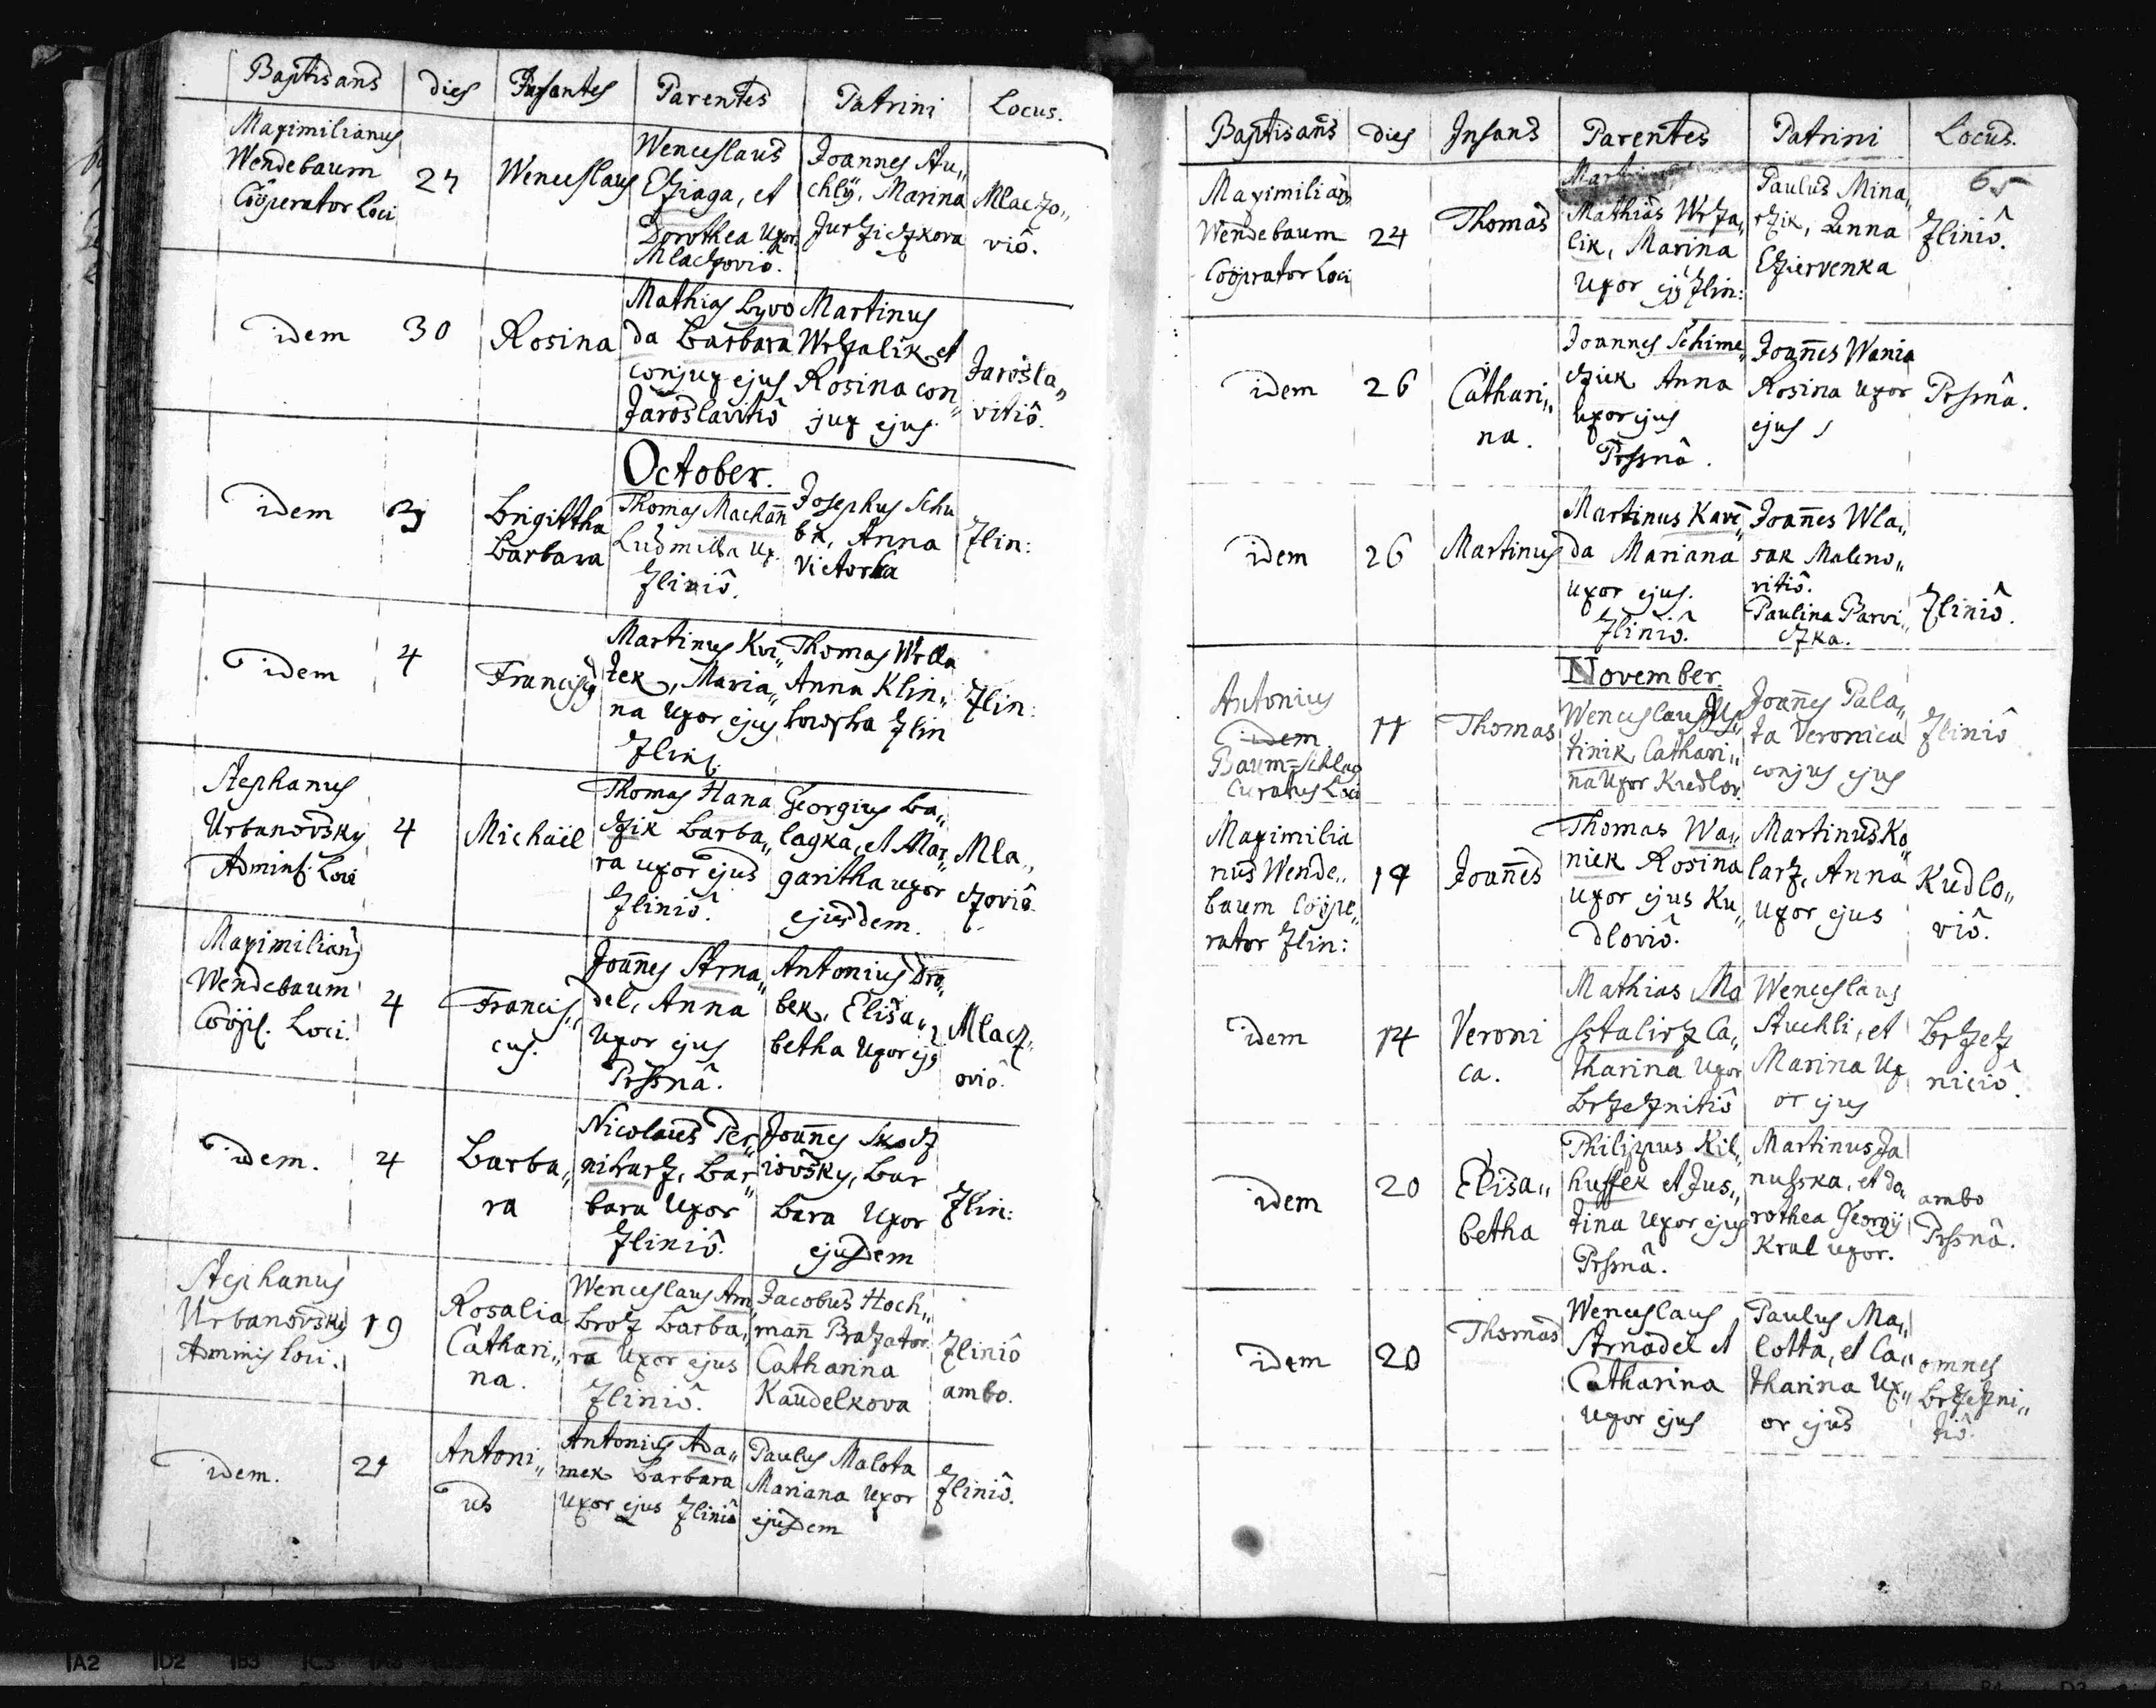 Baptisans dies Infantes Parentes Patrini Locus.
Maximilianus
Wendebaum
Cööperator Loci
27
Wenceslaus
Wenceslaus
Cziaga, et
Dorothea Uxor
Mlaczoviô.
Joannes Stu„
chlÿ, Marina
Jurziczkova
Mlaczo„
viô.
idem 30 Rosina
Mathias Lyvo
da Barbara
conjux ejus
Jaroslavitiô
Martinus
Wrzalik et
Rosina con„
jux ejus.
Jarosla„
vitiô.
October.
idem
3
Brigittha
Barbara
Thomas Machañ
Ludmilla Ux.
Zliniô.
Josephus Schu
bk, Anna
Victorka
Zlin:
idem 4 Franciscus
Martinus Kvi„
tek, Maria„
na Uxor ejus
Zlin:
Thomas Wrlla
Anna Klin„
Zlin
Zlin:
Stephanus
Urbanovsky
Adminis: Loci
4
Michäel
Thomas Hana
czik Barba„
ra uxor ejus
Zliniô.
Georgius Ba„
lagka, et Mar„
garitha uxor
ejusdem.
Mla„
czoviô.
Maximilianus
Wendebaum
Cööp. Loci.
4
Francis„
cus.
Joañes Strna„
del, Anna
Uxor ejus
Prssnâ.
Antonius Dro„
bek, Elisa„
betha Uxor ejus
Mlacz„
oviô.
idem. 4
Barba„
ra
Nicolaus Per„
niharz, Bar„
bara Uxor
Zliniô.
Joañes Skocz
iovsky, Bar
bara Uxor
ejusdem
Zlin:
Stephanus
Urbanovsky
Adminis Loci.
19
Rosalia
Cathari„
na.
Wenceslaus Am„
broz Barba„
ra Uxor ejus
Zliniô.
Jacobus Hoch„
mañ Braxator
Catharina
Kaudelkova
Zliniô
ambo.
idem. 21
Antoni„
us
Antonius Ada„
mek Barbara
Uxor ejus Zliniô
Paulus Malota
Mariana Uxor
ejusdem
Zliniô.
Baptisañs dies Infans Parentes Patrini Locus.
65
Maximilian
Wendebaum
Cööprator Loci
24
Thomas
Mart
Mathias Wrza„
lik, Marina
Uxor ejus Zlin:
Paulus Mina„
rzik, Anna
Cziervenka
Zliniô.
idem 26
Cathari„
na.
Joannes Schime„
cziek Anna
Uxor ejus
Prssnâ.
Joañes Wania
Rosina Uxor
ejus
Prssnâ.
idem 26 Martinus
Martinus Kavi„
da Mariana
uxor ejus.
Zliniô.
Joañes Wla„
sak Maleno„
vitiô.
Paulina Parvi„
czka.
Zliniô.
November.
Antonius
idem
Baum=Schlag
Curatus Loci
11
Thomas
Wenceslaus
tinik, Cathari„
na Uxor Kudlov.
Joañes Pala„
ta Veronica
conjus ejus
Zliniô
Maximilia
nus Wende„
baum Cööpe„
rator Zlin:
14
Joañes
Thomas Wa„
niek Rosina
uxor ejus Ku„
dloviô.
Martinus Ko„
larz, Anna
Uxor ejus
Kudlo„
viô.
idem 14
Veroni
ca.
Mathias Ma
sstalirz Ca„
tharina Uxor
Brzeznitiô
Wenceslaus
Stuchli, et
Marina Ux
or ejus
Brzez
niciô.
idem 20
Elisa„
betha
Philippus Kil„
hussek et Jus„
tina Uxor ejus
Prssnâ.
Martinus Ja
nusska, et do„
rothea Georgij
Kral uxor.
ambo
Prssnâ.
idem 20 Thomas
Wenceslaus
Strnadel et
Catharina
Uxor ejus
Paulus Ma„
lotta, et Ca„
tharina Ux„
or ejus
omnes
Brzezni„
tiô.